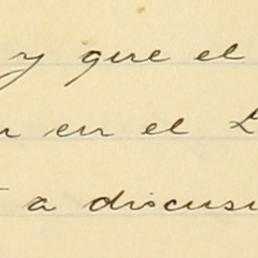 y que el
en el
a discusi